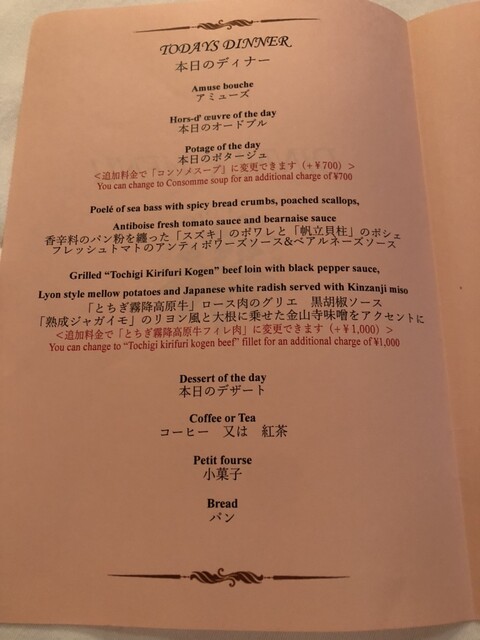 TODAYS DINNER
本日のディナー
Amuse bouche
アミューズ
Hors-d' œuvre of the day
本日のオードブル
Potage of the day
本日のポタージュ
<追加料金で「コンソメスープ」に変更できます（+￥700）>
You can change to Consomme soup for an additional charge of ¥700
Poelé of sea bass with spicy bread crumbs, poached scallops,
Antiboise fresh tomato sauce and bearnaise sauce
香辛料のパン粉を纏った「スズキ」のポワレと「帆立貝柱」のポシェ
フレッシュトマトのアンティボワーズソース&ベアルネーズソース
Grilled “Tochigi Kirifuri Kogen” beef loin with black pepper sauce,
Lyon style mellow potatoes and Japanese white radish served with Kinzanji miso
「とちぎ霧降高原牛」ロース肉のグリエ　黒胡椒ソース
「熟成ジャガイモ」のリヨン風と大根に乗せた金山寺味噌をアクセントに
<追加料金で「とちぎ霧降高原牛フィレ肉」に変更できます（+￥1,000）>
You can change to “Tochigi kirifuri kogen beef” fillet for an additional charge of ¥1,000
Dessert of the day
本日のデザート
Coffee or Tea
コーヒー　又は　紅茶
Petit fourse
小菓子
Bread
パン